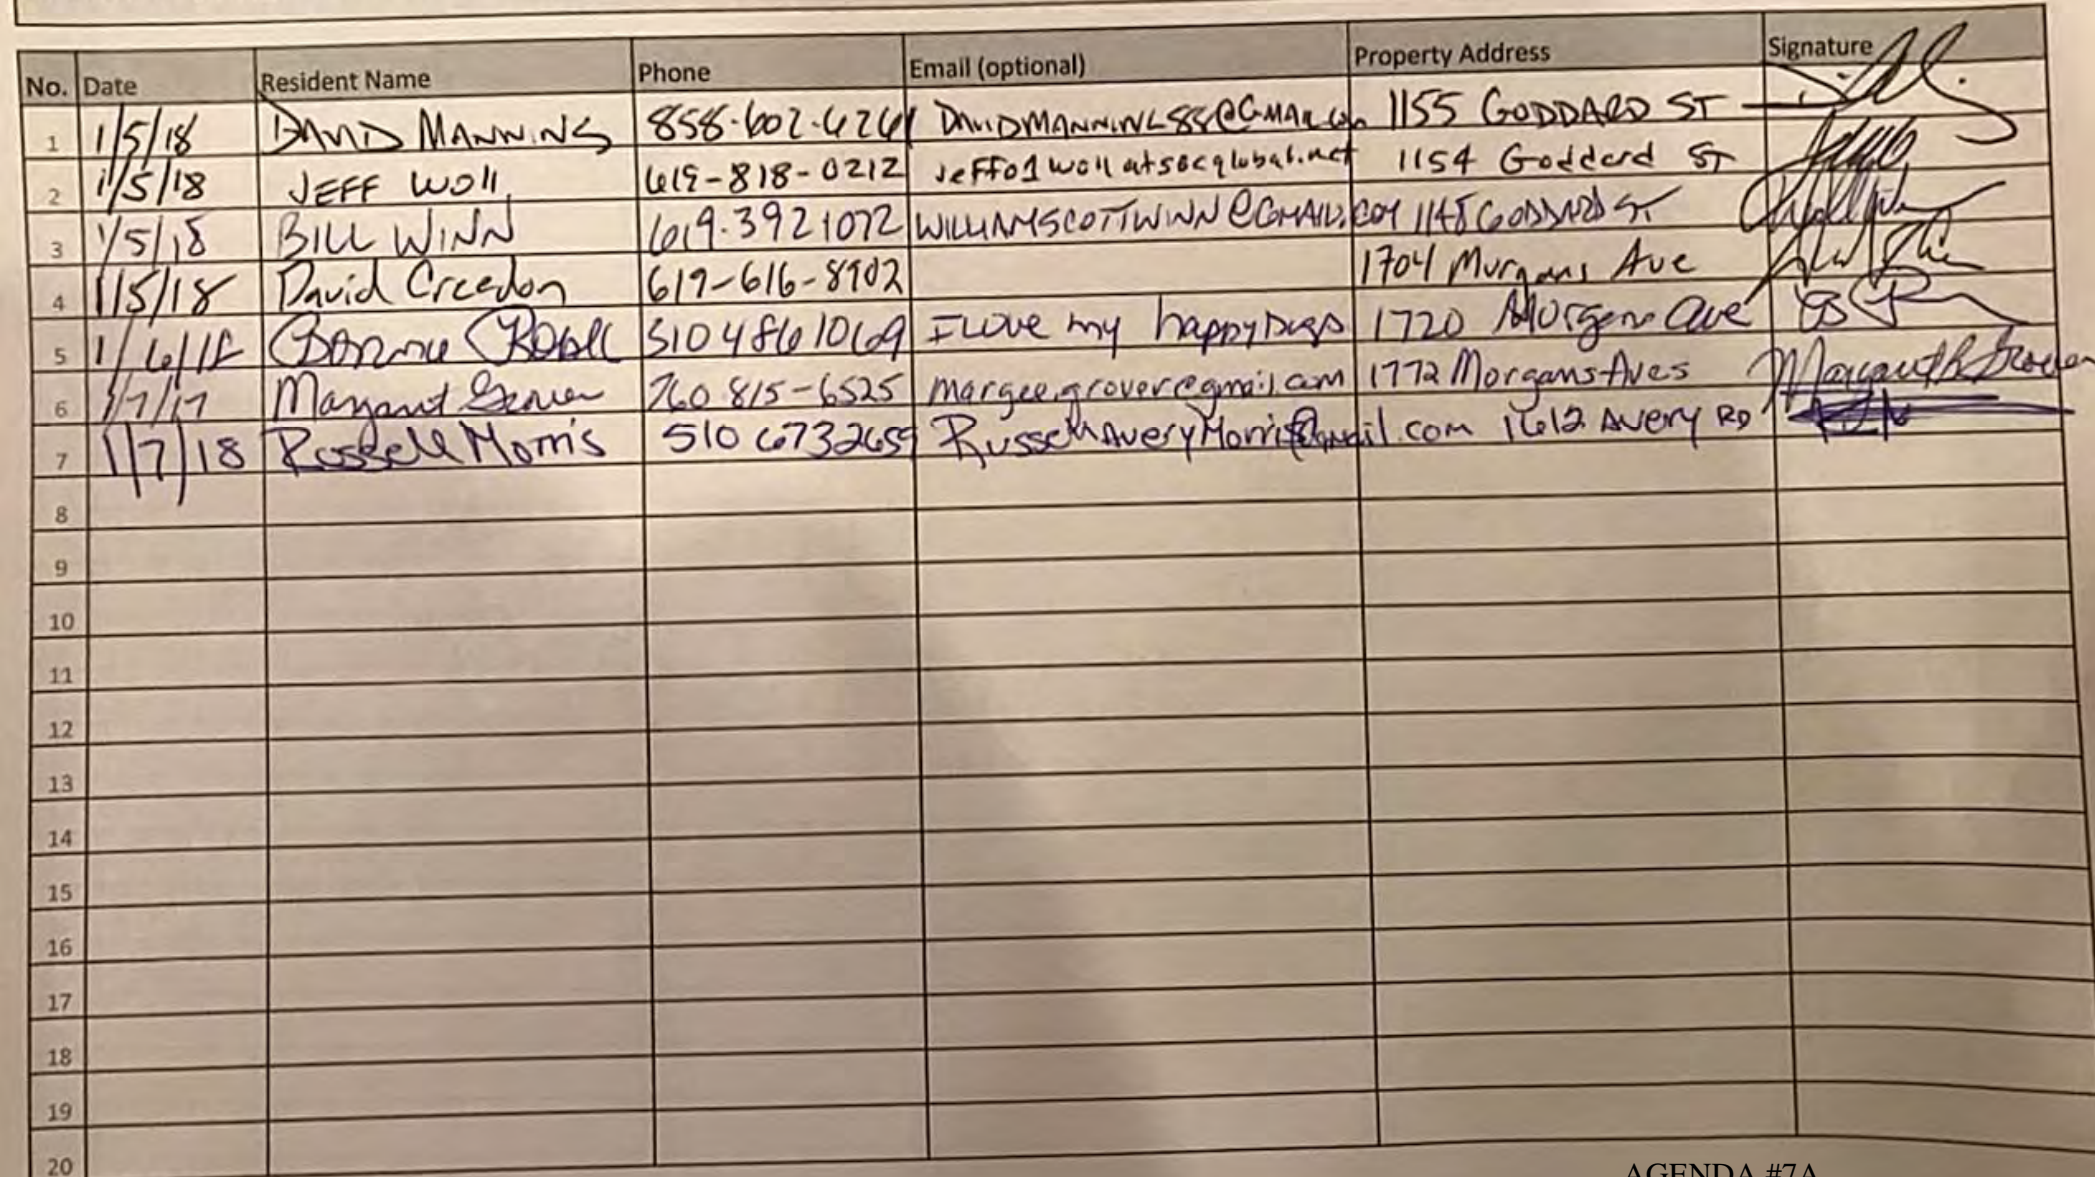 No. Date Resident Name Phone Email (optional) Property Address Signature
1 1/5/18 DAVID MANNING 858-602-6261 1155 GODDARD ST
2 1/5/18 JEFF Woll 619-818-0212 jeff01woll at sbcglobal.net 1154 Goddard ST
3 1/5/18 BILL WINN 619.3921072 WILLIAMSCOTTWINN@GMAIL.COM 1148 GODDARD ST
4 1/5/18 David Creedon 619-616-8902 1704 Morgans Ave
5 510 4861069 I love my happy Dugs 1720 Morgans Ave
6 1/7/17 760 815-6525 margee.grover@gmail.com 1772 Morgans Aves
7 1/7/18 Russell Morris 510 6732659 1612 AVERY RD
8
9
10
11
12
13
14
15
16
17
18
19
20
AGENDA #7A